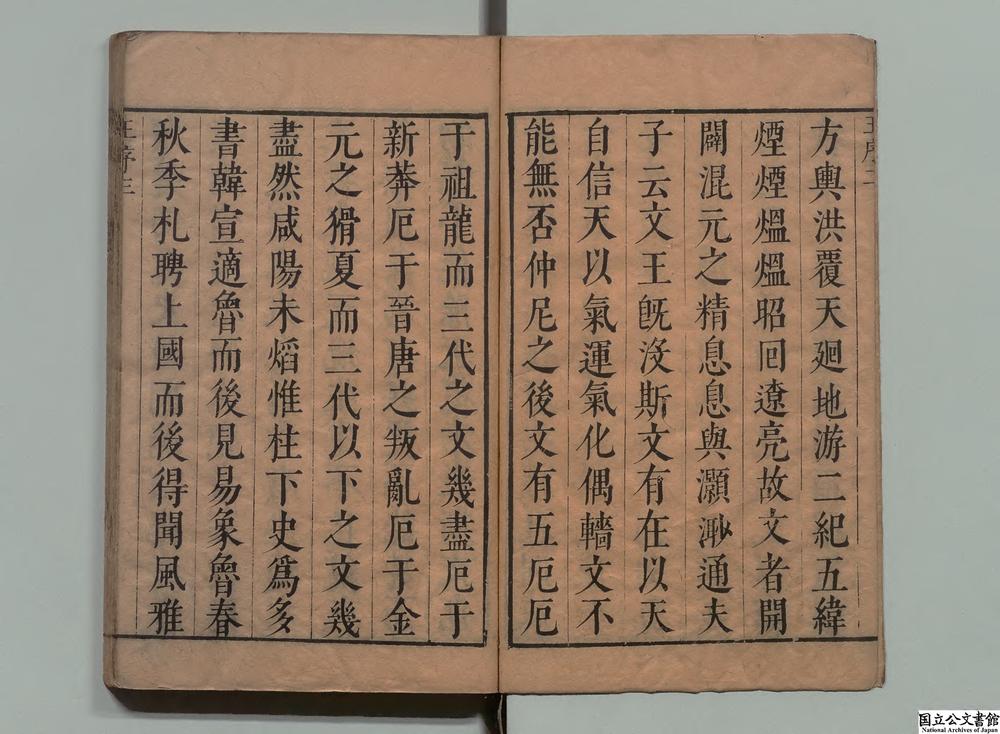 方輿洪覆天廻地游二紀五緯
煙煙熅熅昭囘遼亮故文者開
闢混元之精息息與灝渺通夫
子云文王旣沒斯文有在以天
自信天以氣運氣化偶轖文不
能無否仲尼之後文有五厄厄
于祖龍而三代之文幾盡厄于
新莽厄于晉唐之叛亂厄于金
元之猾夏而三代以下之文幾
盡然咸陽未熖惟柱下史爲多
書韓宣適魯而後見易象魯春
秋季札聘上國而後得聞風雅
王序三
国立公文書館
National Archives of Japan